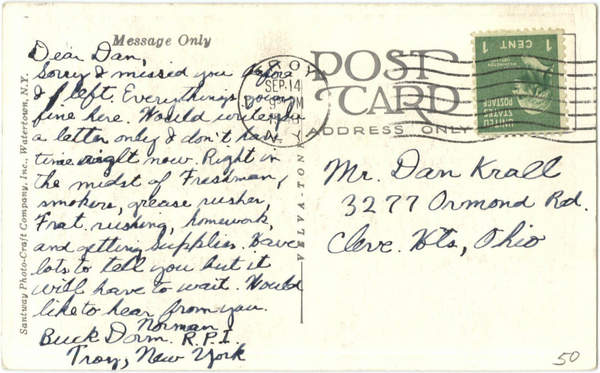 Message Only
Dear Dan,
Sorry I missed you before
I left. Everything's going
fine here. Would write you
a letter only I don't have
time right now. Right in
the midst of Freshman,
smokers, grease rusher,
Frat rushing, homework,
and getting supplies. Have
lots to tell you but it
will have to wait. Would
like to hear from you.
Norman
Buck Dorm. R.P.I.
Troy, New York
Santway Photo-Craft Company, Inc., Watertown, N.Y.
VELVA-TONE
TROY
SEP 14
PM
N.Y.
POST
CARD
ADDRESS ONLY
1 CENT 1
UNITED
STATES
POSTAGE
Mr. Dan Krall
3277 Ormond Rd.
Cleve. Hts, Ohio
50